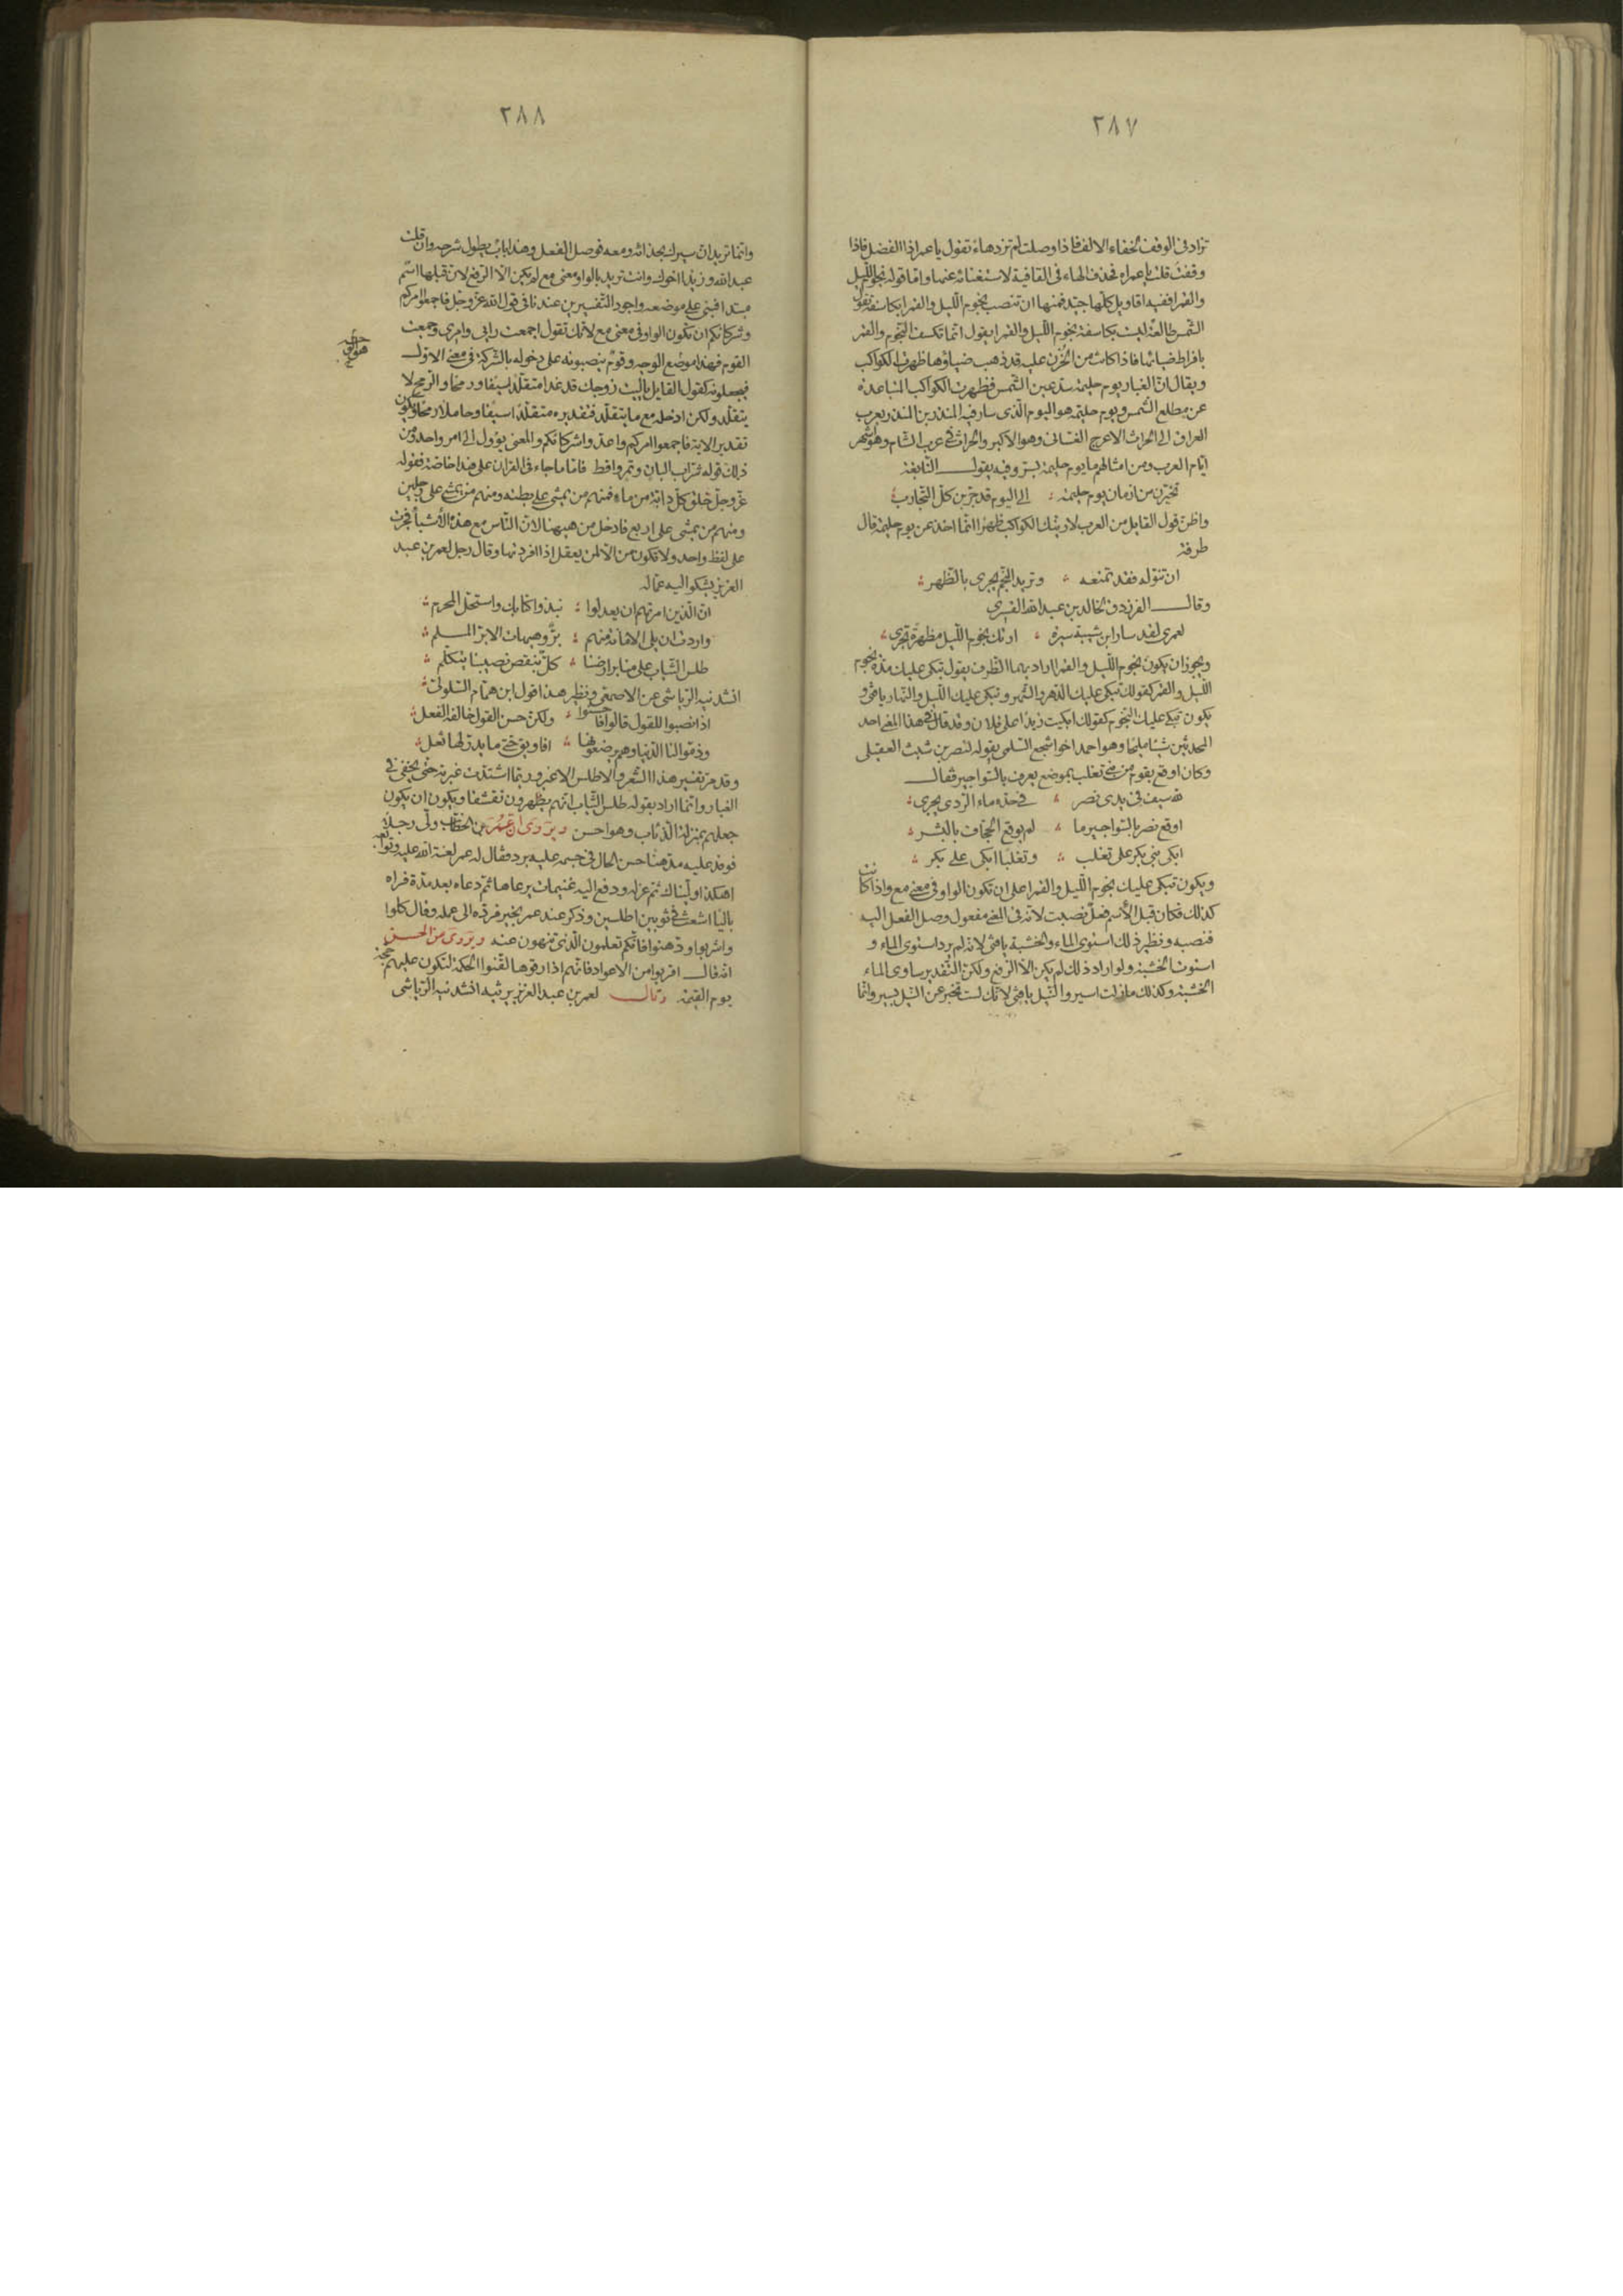 ٢٨٧
تزاد فى الوقف لخفاء الالف فاذا وصلت لم تزدها تقول يا عمرا ذا الفضل فاذا
وقفت قلت يا عمراه فحذف الهاء فى القافية لاستغنائه عنها واما قوله نجوم الليل
والقمرا ففيه اقاويل كلها جيد فمنها ان تنصب نجوم الليل والقمرا بكاسفة تقول
الشمس طالعة ليست بكاسفة نجوم الليل والقمرا يقول انما تكسف النجوم والقمر
بافراط ضيائها فاذا كانت من الحزن عليه قد ذهب ضياؤها ظهرت الكواكب
ويقال ان الغبار يوم حليمة سد عين الشمس فظهرت الكواكب المتباعدة
عن مطلع الشمس ويوم حليمة هو اليوم الذى سار فيه المنذر بن المنذر بعرب
العراق الى الحارث الاعرج الغسانى وهو الاكبر والحارث فى عرب الشام وهو اشهر
ايام العرب ومن امثالهم ما يوم حليمة بسر وفيه يقول النابغة
تخيرن من ازمان يوم حليمة : الى اليوم قد جربن كل التجارب
واظن قول القايل من العرب لارينك الكواكب ظهرا انما اخذ من يوم حليمة قال
طرفة
ان تنوله فقد تمنعه وتريه النجم يجرى بالظهر
وقال الفرزدق لخالد بن عبد الله القسرى
لعمرى لقد سار ابن شيبة سيرة ارتك نجوم الليل مظهرة تجرى
ويجوز ان يكون نجوم الليل والقمرا اراد بهما الظرف يقول تبكى عليك مدة نجوم
الليل والقمر كقولك تبكى عليك الدهر والشهر وتبكى عليك الليل والنهار يا فتى و
يكون تبكى عليك النجوم كقولك ابكيت زيدا على فلان وقد قال فى هذا المعنى احد
المحدثين شيئا مليحا وهو احمد اخو اشجع السلمى يقوله لنصر بن شبث العقيلى
وكان اوقع بقوم من بنى تغلب بموضع يعرف بالسواجير فقال
لله سيف فى يدى نصر فى حده ماء الردى يجرى
اوقع نصر بالسواجير ما لم يوقع الجحاف بالبشر
ابكى بنى بكر على تغلب وتغلبا ابكى على بكر
ويكون تبكى عليك نجوم الليل والقمرا على ان تكون الواو فى معنى مع واذا كانت
كذلك فكان قبل الاسم فعل نصبت لانه فى المعنى مفعول وصل الفعل اليه
فنصبه ونظير ذلك استوى الماء والخشبة يا فتى لانه لم يرد استوى الماء و
استوت الخشبة ولو اراد ذلك لم يكن الا الرفع ولكن التقدير ساوى الماء
الخشبة وكذلك ما زلت اسير والنيل يا فتى لانك لست تخبر عن النيل بسير وانما
٢٨٨
وانما تريد ان سيرك بحذائه ومعه فوصل الفعل وهذا باب يطول شرحه وان قلت
عبد الله وزيدا اخوك وانت تريد بالواو معنى مع لم يكن الا الرفع لان قبلها اسم
مبتدا فبقى على موضعه واجود التفسيرين عندنا فى قول الله عز وجل فاجمعوا امركم
وشركاءكم ان تكون الواو فى معنى مع لانك تقول اجمعت رايى وامرى وجمعت
القوم فهذا موضع الوجه وقوم ينصبونه على دخوله بالشركة فى معنى الاول
فيجعلونه كقول القايل يا ليت زوجك قد غدا متقلدا سيفا ورمحا والرمح لا
يتقلد ولكن ادخله مع ما يتقلد فتقديره متقلدا سيفا وحاملا رمحا ويكون
تقدير الاية فاجمعوا امركم واعدوا شركاءكم والمعنى يؤول الى امر واحد ومن
ذلك قوله شراب البان وتمر واقط فاما ما جاء فى القرآن على هذا خاصة فقوله
عز وجل خلق كل دابة من ماء فمنهم من يمشى على بطنه ومنهم من يمشى على رجلين
ومنهم من يمشى على اربع فادخل من ههنا لان الناس مع هذه الاشياء فجرت
على لفظ واحد ولا تكون من الا لمن يعقل اذا افردتها وقال رجل لعمر بن عبد
العزيز يشكو اليه عماله
ان الذين امرتهم ان يعدلوا نبذوا كتابك واستحل المحرم
واردت ان يلى الامانة منهم بر وهيهات الابر المسلم
طلس الثياب على منابر ارضنا كل بنقص نصيبنا يتكلم
انشدنيه الرياشى عن الاصمعى ونظير هذا قول ابن همام السلولى
اذا نصبوا للقول قالوا فاحسنوا ولكن حسن القول خالفه الفعل
وذموا لنا الدنيا وهم يرضعونها افاويق حتى ما يدر لها ثعل
وقد مر تفسير هذا الشعر والاطلس الاغبر وربما اشتدت غبرته حتى يخفى فى
الغبار وانما اراد بقوله طلس الثياب انهم يظهرون تقشفا ويكون ان يكون
جعلهم بمنزلة الذئاب وهو احسن ويروى ان عمر بن الخطاب ولى رجلا
فوفد عليه مدهنا حسن الحال فى جسمه عليه بردة فقال له عمر لعنة الله عليه
اهكذا وليناك ثم عزله ودفع اليه غنيمات يرعاها ثم دعاه بعد مدة فراه
باليا اشعث فى ثوبين اطلسين وذكر عند عمر بخير فرده الى عمله وقال كلوا
واشربوا وادهنوا فانكم تعلمون الذى تنهون عنه ويروى عن الحسن
انه قال اقربوا من الاعواد فانهم اذا رقوها لقنوا الحكمة لتكون عليهم حجة
يوم القيمة وقال لعمر بن عبد العزيز يرثيه انشدنيه الرياشى